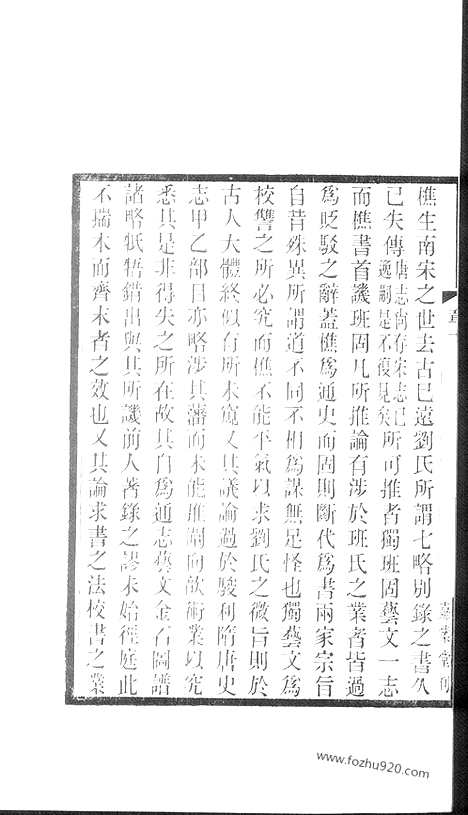 樵生南宋之世去古已遠劉氏所謂七略別錄之書久
已失傳唐志尚有宋志已逸嗣是不復見矣所可推者獨班固藝文一志
而樵書首譏班固凡所推論有涉於班氏之業者皆過
爲貶駁之辭蓋樵爲通史而固則斷代爲書兩家宗旨
自昔殊異所謂道不同不相爲謀無足怪也獨藝文爲
校讐之所必究而樵不能平氣以求劉氏之微旨則於
古人大體終似有所未窺又其議論過於駿利隋唐史
志甲乙部目亦略涉其藩而未能推闡向歆術業以究
悉其是非得失之所在故其自爲通志藝文金石圖譜
諸略牴牾錯出與其所譏前人著錄之謬未始徑庭此
不揣本而齊末者之效也又其論求書之法校書之業
www.fozhu920.com